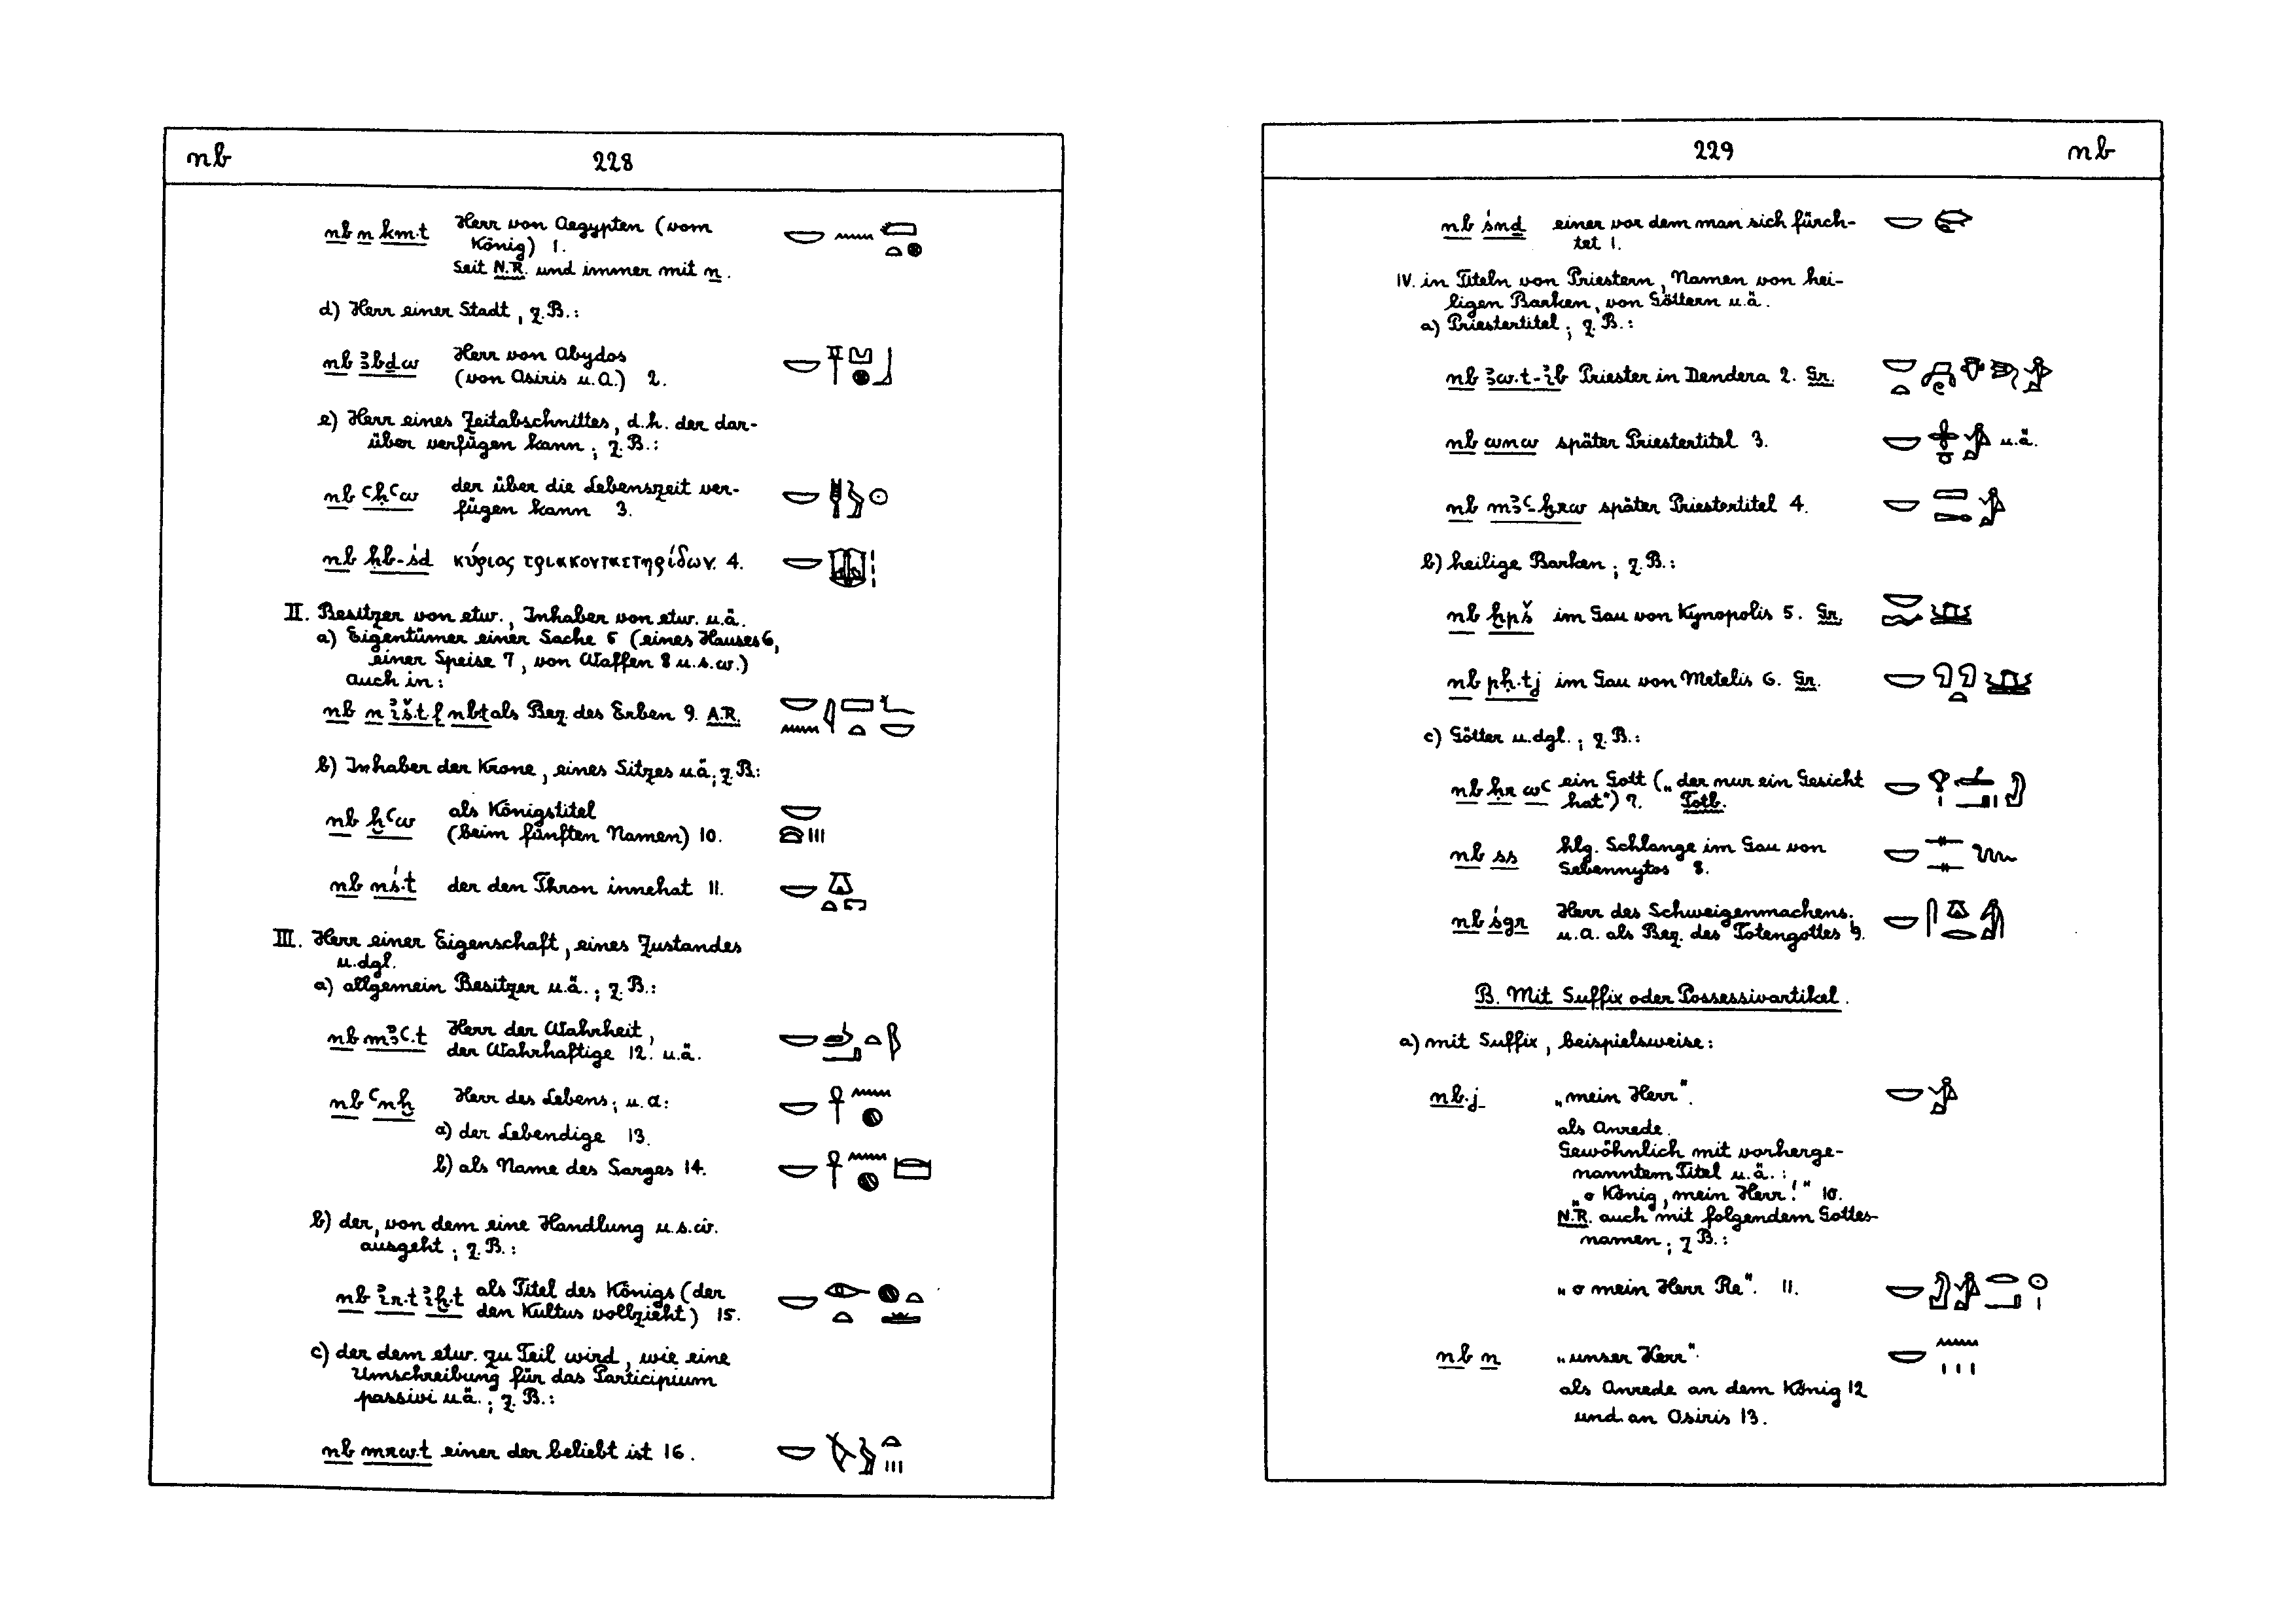 nb 228
nb n km.t Herr von Aegypten (vom
König) 1.
Seit N.R. und immer mit n.
d) Herr einer Stadt, z.B.:
nb ꜣbḏw Herr von Abydos
(von Osiris u.a.) 2.
e) Herr eines Zeitabschnittes, d.h. der dar-
über verfügen kann; z.B.:
nb ꜥḥꜥw der über die Lebenszeit ver-
fügen kann 3.
nb ḥb-śd κύριος τριακονταετηρίδων. 4.
II. Besitzer von etw., Inhaber von etw. u.ä.
a) Eigentümer einer Sache 5 (eines Hauses 6,
einer Speise 7, von Waffen 8 u.s.w.)
auch in:
nb n ꞽš.t f nb.t als Bez. des Erben 9. A.R.
b) Inhaber der Krone, eines Sitzes u.ä; z.B:
nb ḫꜥw als Königstitel
(beim fünften Namen) 10.
nb nś.t der den Thron innehat 11.
III. Herr einer Eigenschaft, eines Zustandes
u.dgl.
a) allgemein Besitzer u.ä.; z.B.:
nb mꜣꜥ.t Herr der Wahrheit,
der Wahrhaftige 12. u.ä.
nb ꜥnḫ Herr des Lebens; u.a:
a) der Lebendige 13.
b) als Name des Sarges 14.
b) der, von dem eine Handlung u.s.w.
ausgeht; z.B.:
nb ꞽr.t ꞽḫ.t als Titel des Königs (der
den Kultus vollzieht) 15.
c) der dem etw. zu Teil wird, wie eine
Umschreibung für das Participium
passivi u.ä.; z.B.:
nb mrw.t einer der beliebt ist 16.
229 nb
nb śnḏ einer vor dem man sich fürch-
tet 1.
IV. in Titeln von Priestern, Namen von hei-
ligen Barken, von Göttern u.ä.
a) Priestertitel; z.B.:
nb ꜣw.t-ꞽb Priester in Dendera 2. Gr.
nb wnw später Priestertitel 3. u.ä.
nb mꜣꜥ-ḫrw später Priestertitel 4.
b) heilige Barken; z.B.:
nb ḫpš im Gau von Kynopolis 5. Gr.
nb pḥ.tj im Gau von Metelis 6. Gr.
c) Götter u.dgl.; z.B.:
nb ḥr wꜥ ein Gott („der nur ein Gesicht
hat“) 7. Totb.
nb ss hlg. Schlange im Gau von
Sebennytos 8.
nb śgr Herr des Schweigenmachens;
u.a. als Bez. des Totengottes 9.
B. Mit Suffix oder Possessivartikel.
a) mit Suffix, beispielsweise:
nb.j „mein Herr“.
als Anrede.
Gewöhnlich mit vorherge-
nanntem Titel u.ä.:
„o König, mein Herr!“ 10.
N.R. auch mit folgendem Gottes-
namen; z.B.:
„o mein Herr Re“. 11.
nb n „unser Herr“.
als Anrede an dem König 12
und an Osiris 13.